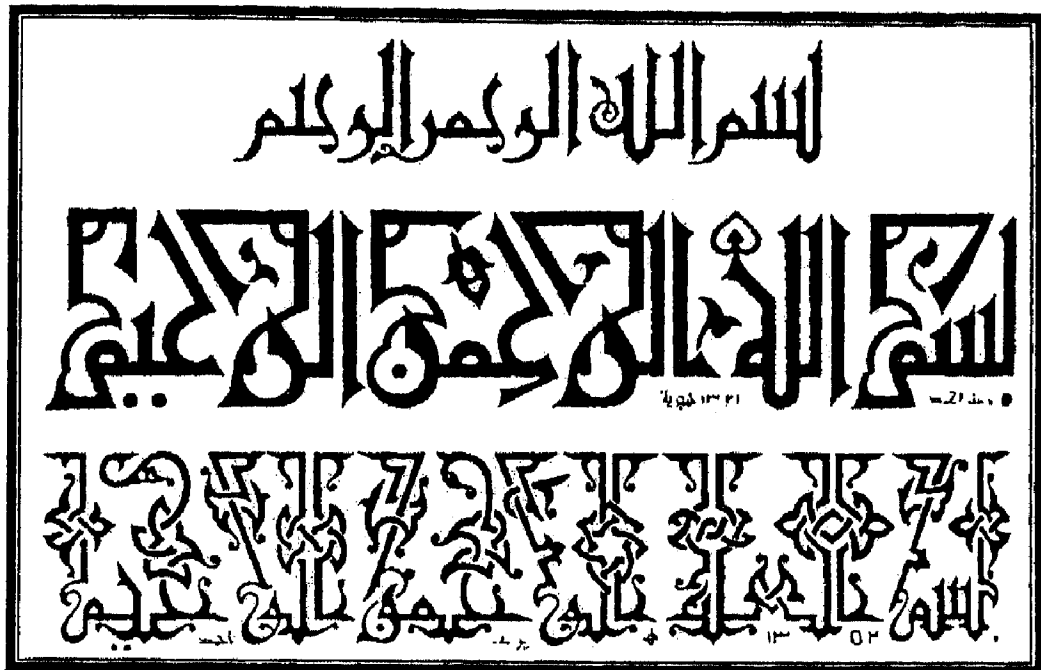 بسم الله الرحمن الرحيم
بسم الله الرحمن الرحيم
١٣٢١ هجرية
بسم الله الرحمن الرحيم
١٣٥٢